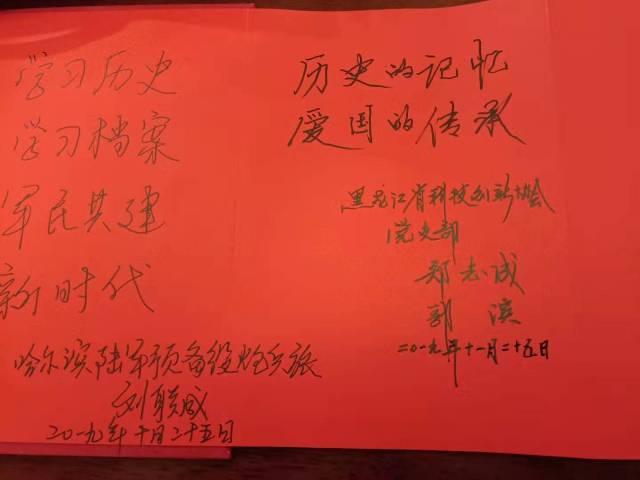 学习历史
学习档案
军民共建
新时代
哈尔滨陆军预备役炮兵旅
刘联成
二〇一九年十月二十五日
历史的记忆
爱国的传承
黑龙江省科技创新协会
党史部
郑志成
郭滨
二〇一九年十一月二十五日